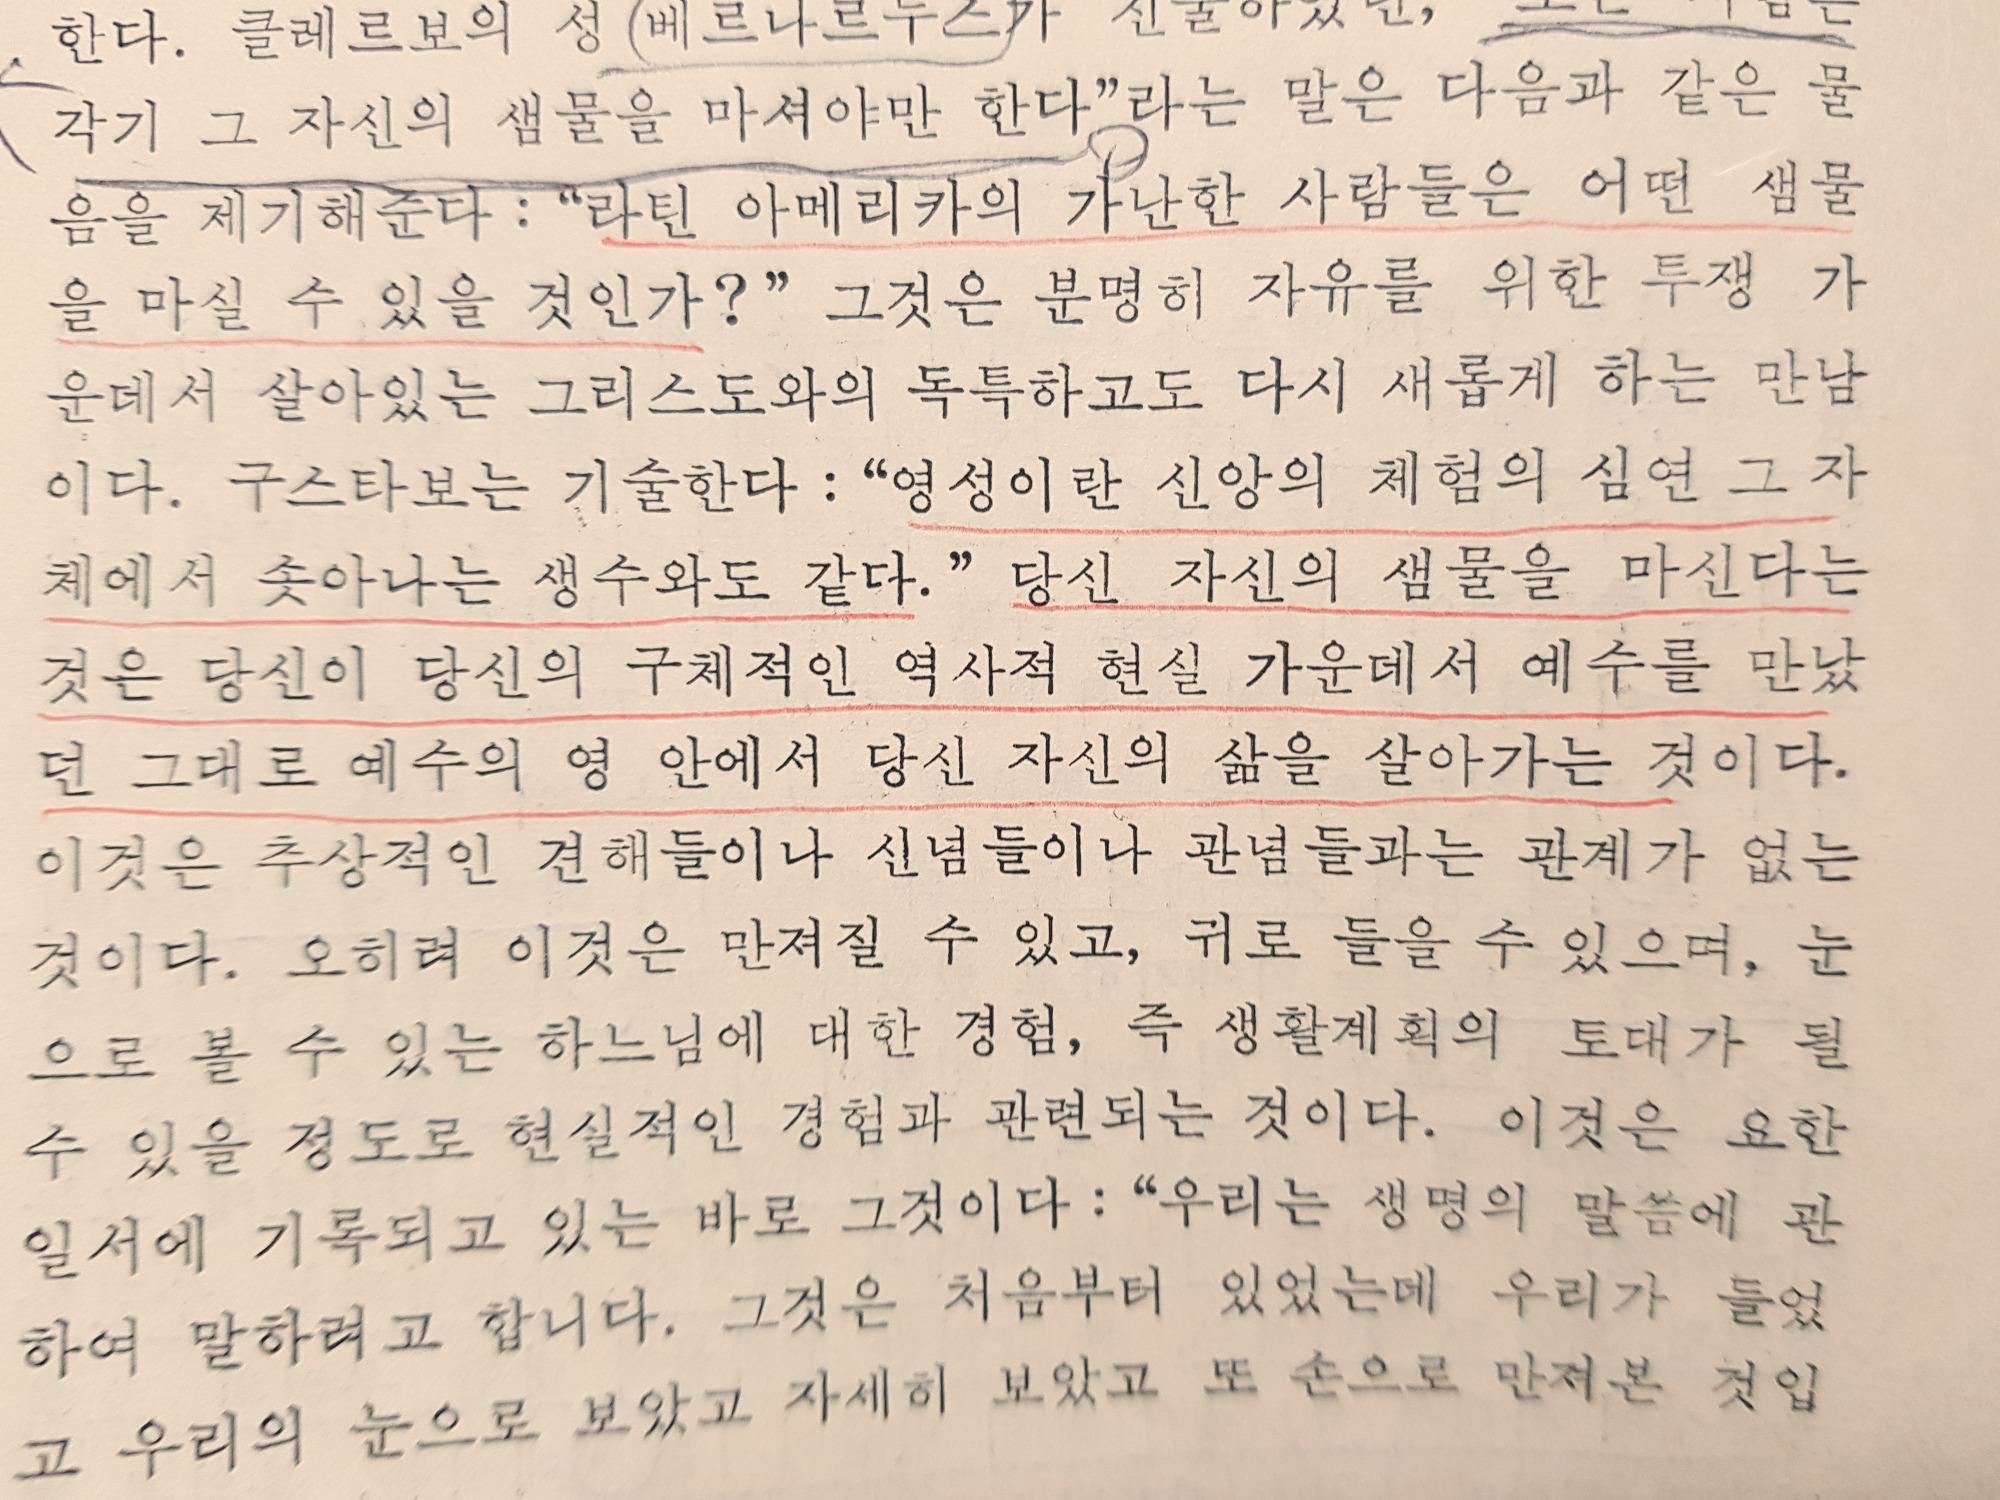 한다. 클레르보의 성 (베르나르두스)가 진술하였던, 모든 사람은
각기 그 자신의 샘물을 마셔야만 한다”라는 말은 다음과 같은 물
음을 제기해준다 : “라틴 아메리카의 가난한 사람들은 어떤 샘물
을 마실 수 있을 것인가?” 그것은 분명히 자유를 위한 투쟁 가
운데서 살아있는 그리스도와의 독특하고도 다시 새롭게 하는 만남
이다. 구스타보는 기술한다 : “영성이란 신앙의 체험의 심연 그 자
체에서 솟아나는 생수와도 같다.” 당신 자신의 샘물을 마신다는
것은 당신이 당신의 구체적인 역사적 현실 가운데서 예수를 만났
던 그대로 예수의 영 안에서 당신 자신의 삶을 살아가는 것이다.
이것은 추상적인 견해들이나 신념들이나 관념들과는 관계가 없는
것이다. 오히려 이것은 만져질 수 있고, 귀로 들을 수 있으며, 눈
으로 볼 수 있는 하느님에 대한 경험, 즉 생활계획의 토대가 될
수 있을 정도로 현실적인 경험과 관련되는 것이다. 이것은 요한
일서에 기록되고 있는 바로 그것이다 : “우리는 생명의 말씀에 관
하여 말하려고 합니다. 그것은 처음부터 있었는데 우리가 들었
고 우리의 눈으로 보았고 자세히 보았고 또 손으로 만져본 것입